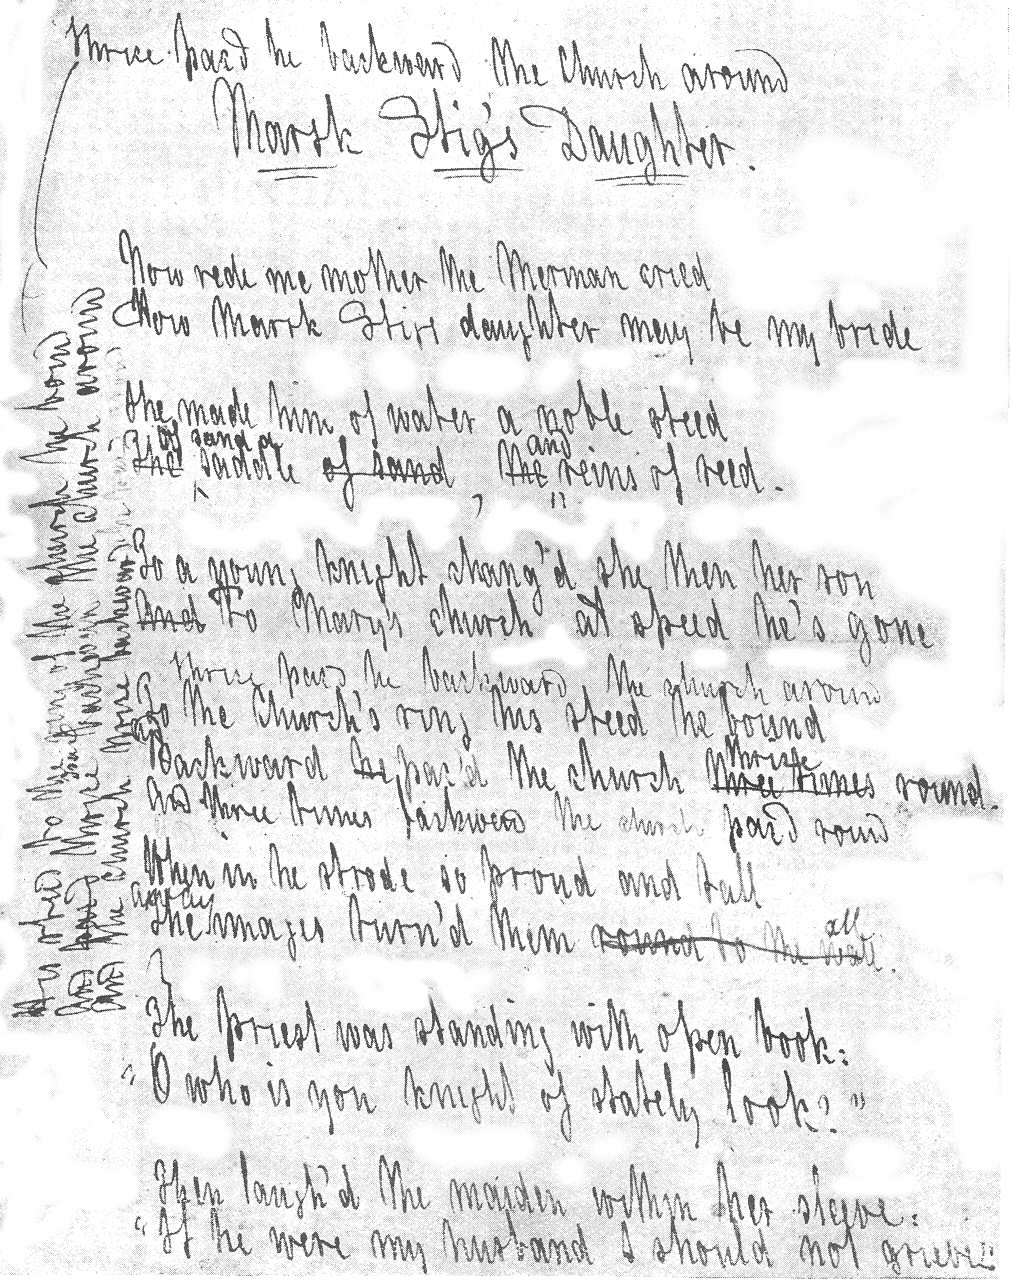 Thrice pac'd he backward the church around
Marsk Stig's Daughter.
Now rede me mother the Merman cried
How Marsk Stigs daughter may be my bride
She made him of water a noble steed
of sand a and
The saddle of sand, the reins of reed.
To a young knight chang'd she then her son
And To Mary's church at speed he's gone
Thrice pac'd he backward the church around
To the church's ring his steed he bound
And Thrice
Backward he pac'd the church three times round.
And three times backward the church pac'd round
When in he strode so proud and tall
away all
The images turn'd them round to the wall.
The priest was standing with open book:
"O who is yon knight of stately look?"
Then laugh'd the maiden within her sleeve:
"If he were my husband I should not grieve!
His steed to the ring of the church he bound
And pac'd thrice backward the church around
And the church thrice backward